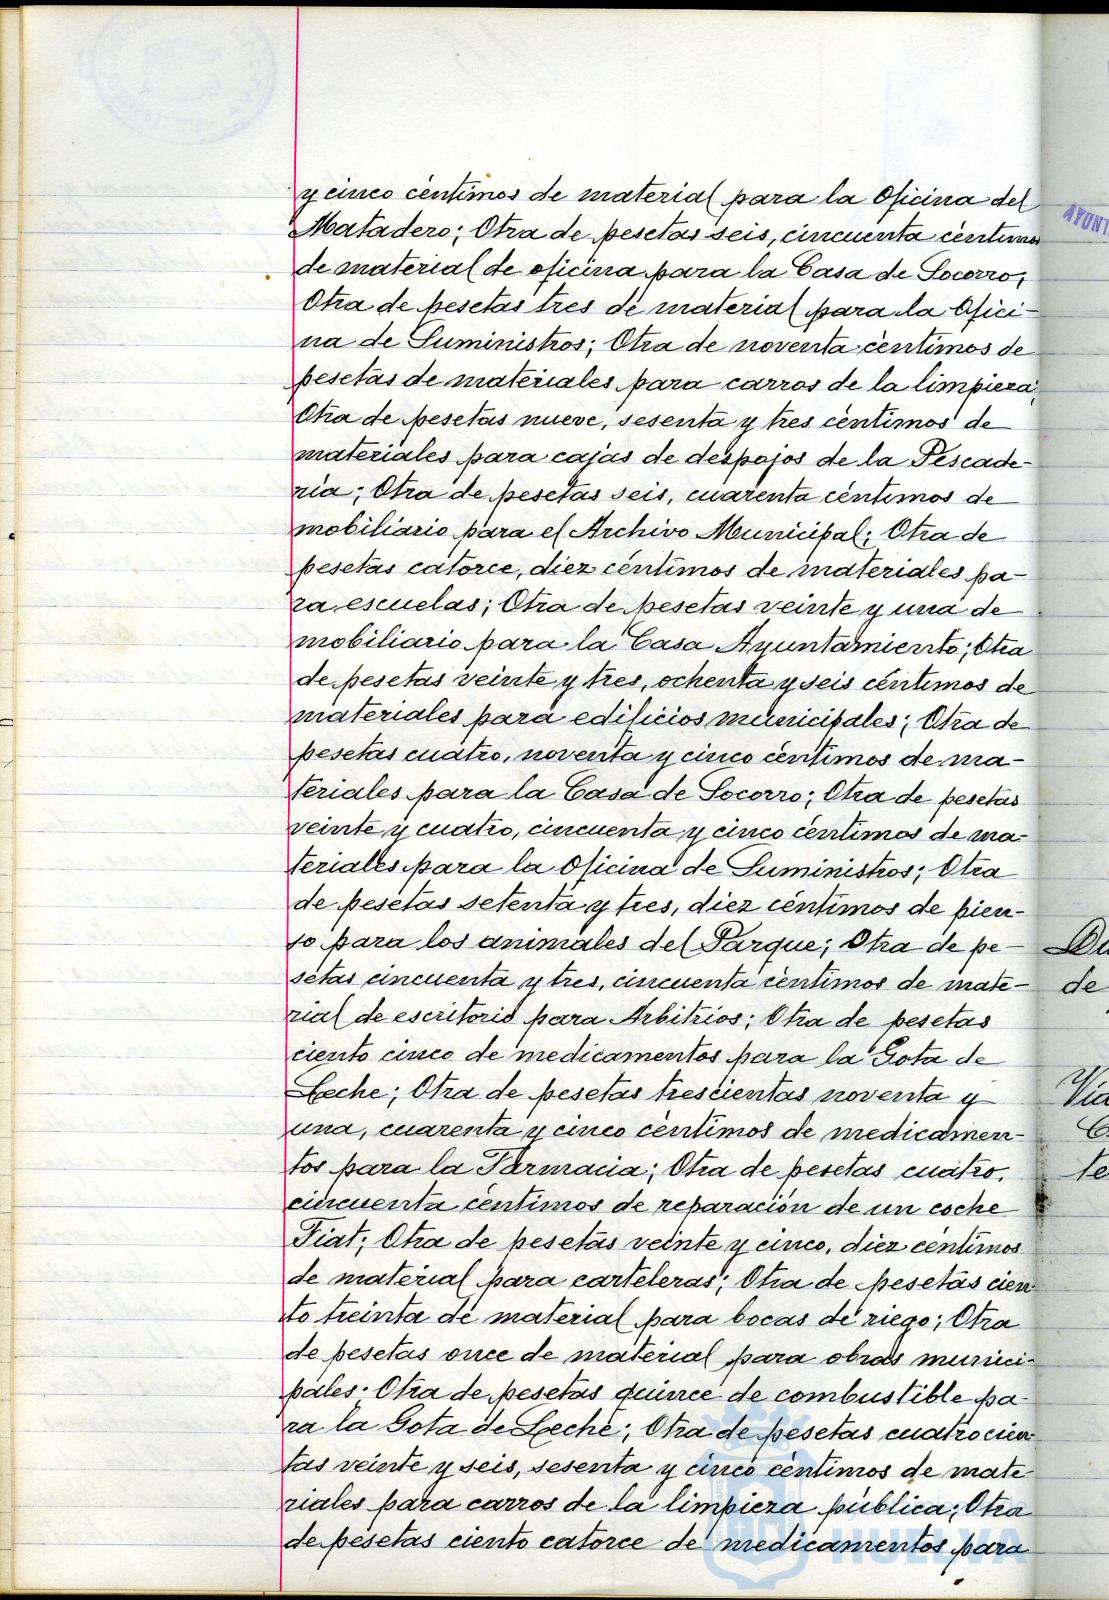 y cinco céntimos de material para la Oficina del
Matadero; Otra de pesetas seis, cincuenta céntimos
de material de oficina para la Casa de Socorro;
Otra de pesetas tres de material para la Ofici-
na de Suministros; Otra de noventa céntimos de
pesetas de materiales para carros de la limpieza;
Otra de pesetas nueve, sesenta y tres céntimos de
materiales para cajas de despojos de la Pescade-
ria; Otra de pesetas seis, cuarenta céntimos de
mobiliario para el Archivo Municipal; Otra de
pesetas catorce, diez céntimos de materiales pa-
ra escuelas; Otra de pesetas veinte y una de
mobiliario para la Casa Ayuntamiento; Otra
de pesetas veinte y tres, ochenta y seis céntimos de
materiales para edificios municipales; Otra de
pesetas cuatro, noventa y cinco céntimos de ma-
teriales para la Casa de Socorro; Otra de pesetas
veinte y cuatro, cincuenta y cinco céntimos de ma-
teriales para la Oficina de Suministros; Otra
de pesetas setenta y tres, diez céntimos de pien-
so para los animales del Parque; Otra de pe-
setas cincuenta y tres, cincuenta céntimos de mate-
rial de escritorio para Arbitrios; Otra de pesetas
ciento cinco de medicamentos para la Gota de
Leche; Otra de pesetas trescientas noventa y
una, cuarenta y cinco céntimos de medicamen-
tos para la Farmacia; Otra de pesetas cuatro,
cincuenta céntimos de reparación de un coche
Fiat; Otra de pesetas veinte y cinco, diez céntimos
de material para carteleras; Otra de pesetas cien-
to treinta de material para bocas de riego; Otra
de pesetas once de material para obras munici-
pales. Otra de pesetas quince de combustible pa-
ra la Gota de Leche; Otra de pesetas cuatrocien-
tas veinte y seis, sesenta y cinco céntimos de mate-
riales para carros de la limpieza pública; Otra
de pesetas ciento catorce de medicamentos para
AYUNT
Du
de
Via
C
te
HUELVA